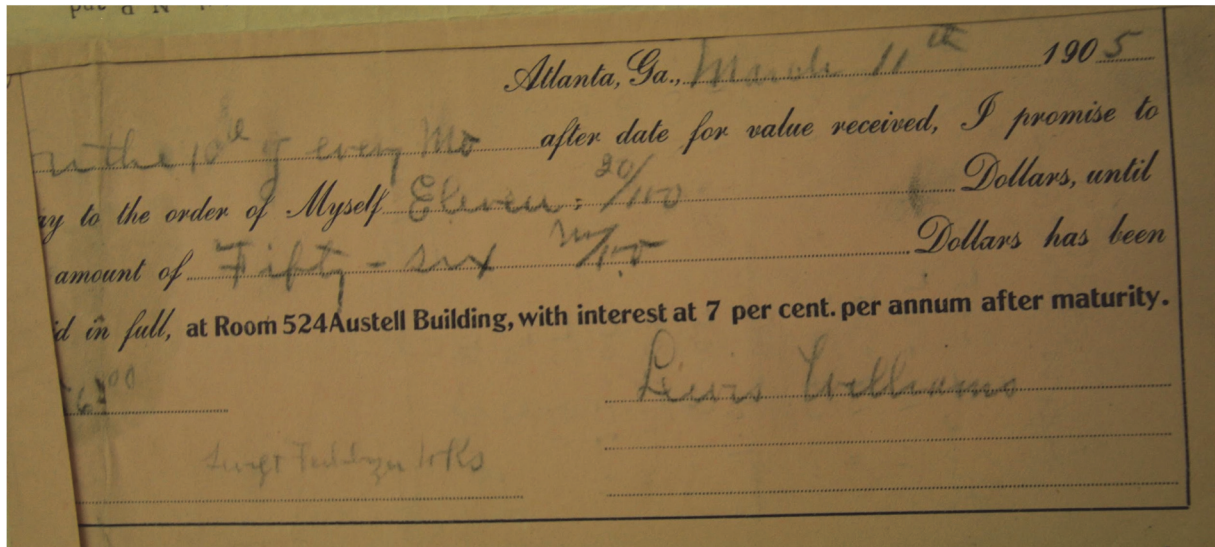 Atlanta, Ga., March 11th 1905
on the 10th of every Mo after date for value received, I promise to
ay to the order of Myself Eleven : 20/100 Dollars, until
amount of Fifty - six no/100 Dollars has been
d in full, at Room 524 Austell Building, with interest at 7 per cent. per annum after maturity.
Lewis Williams